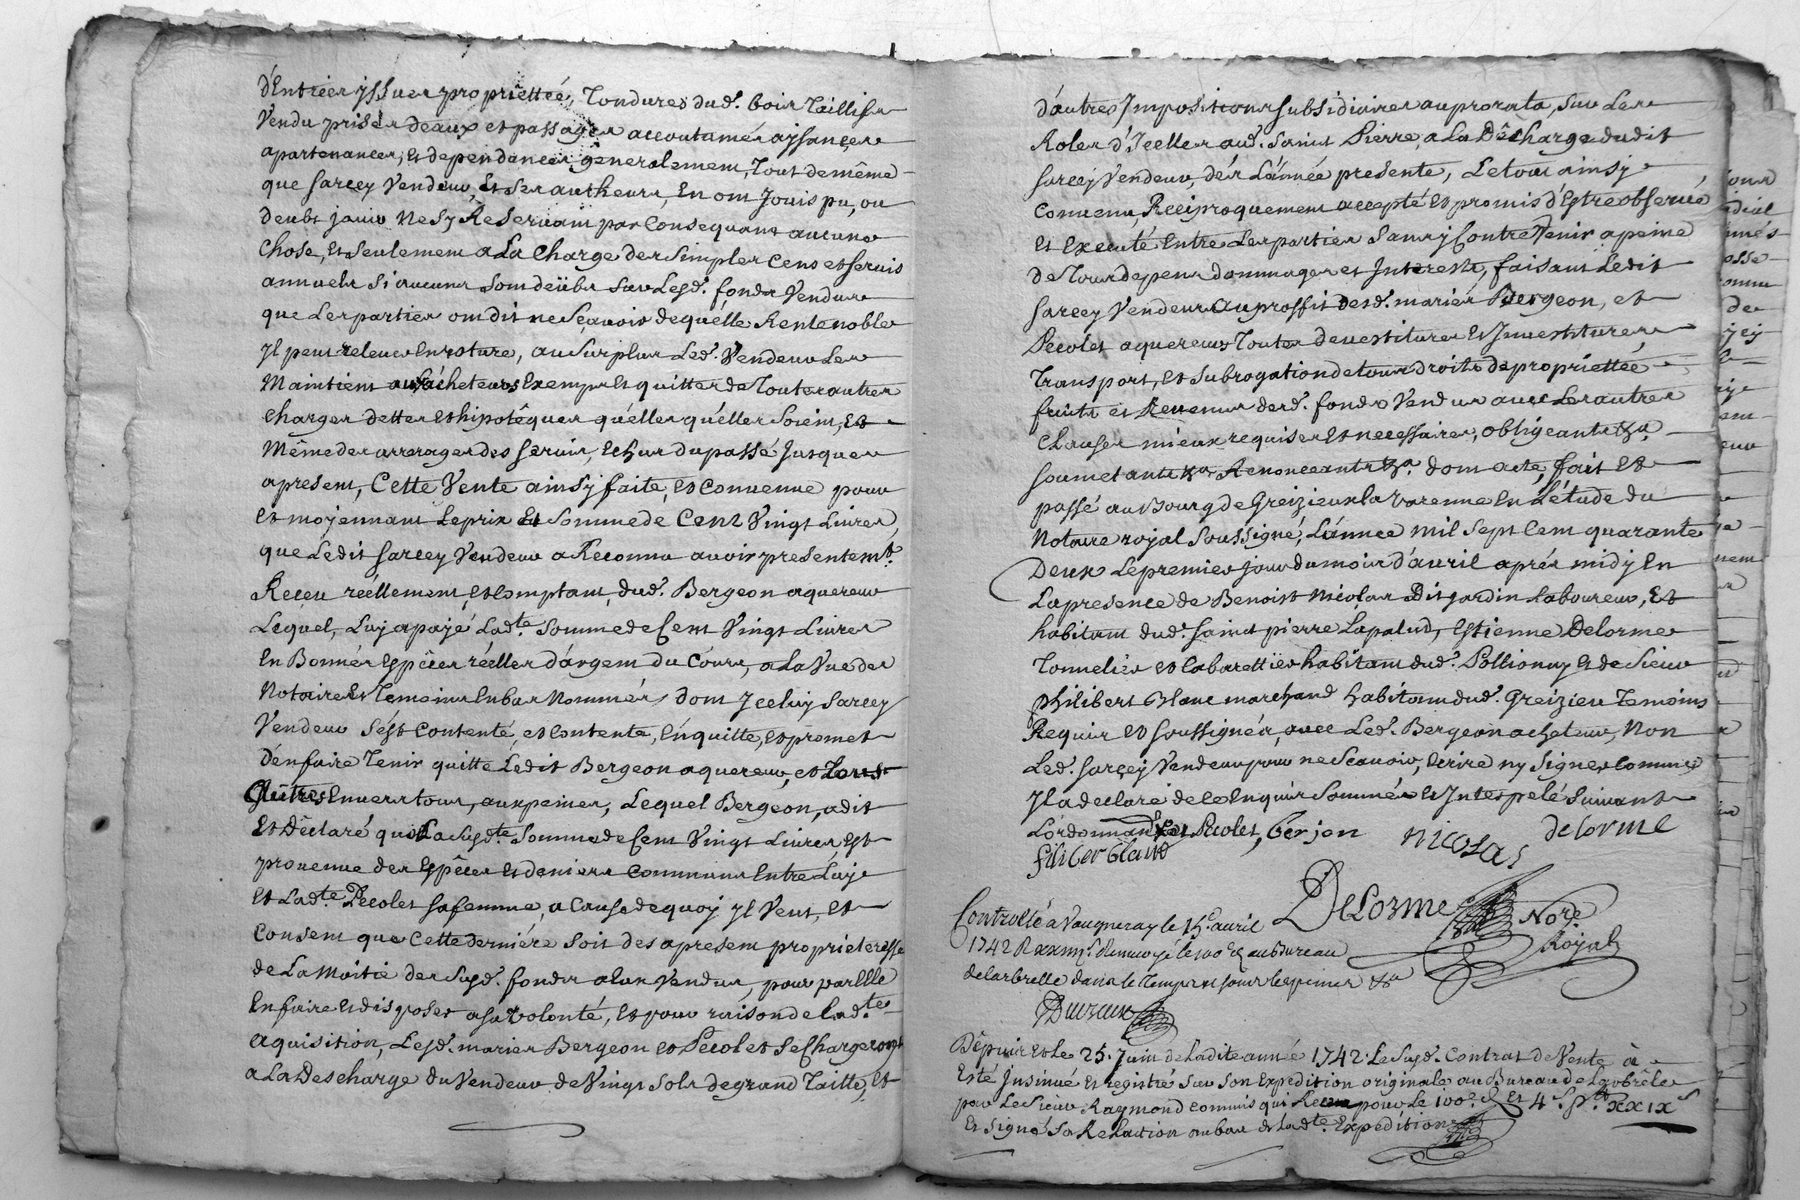 d'Entrées yssues proprietteé, Tondures dud. bois Taillis
Vendu prises d'eaux et passages accoutumés aysances
apartenances, et dependances géneralement, Tout de même
que Sarcey Vendeur, Et Ses autheurs, En ont Jouis pu, ou
deubt jouir Ne Sy Reservant par Consequant aucune
Chose, Et Seulement a La Charge des Simples Cens et servis
annuels Si aucuns Sont deübs Sur Les d. fonds Vendus
que Les parties ont dit ne Sçavoir de quélle Rente noble
Jl peut releve En roture, au Surplus Led. Vendeur Les
Maintient aux acheteurs Exempts Et quittes de Toutes autres
Charges dettes Et hipotêques qu'elles qu'élles Soient, Et
Même des arrerages des Servis, Echus du passé Jusques
apresent, Cette Vente ainsy faite, et Convenue pour
Et moÿennant Le prix Et Somme de Cent Vingt Livres,
que Lédit Sarcey Vendeur a Reconnu avoir presentemt.
Reçeu réellement, et Comptant, dud. Bergeon aquereur
Lequel, Luy a paÿé Ladte. Somme de Cent Vingt Livres
En Bonnés Espêces réelles d'argent du Cours, a La Vue des
Notaire Et Temoins En bas Nommés, dont Jceluy Sarcey
Vendeur S'est Contenté, et Contente, En quitte, et promet
D'en faire Tenir quitte Ledit Bergeon aquereur, et Tous
Autres Envers tous, aux peines, Lequel Bergeon, a dit
Et Déclaré que La Susdte. Somme de Cent Vingt Livres Est
provenue des Espêces Et deniers Communs Entre Luÿ
Et Ladte. Pecolet Sa femme, a Cause de quoy Jl Veut, Et
Consent que Cette derniére Soit des apresent proprieteresse
de La Moitié des Susd. fonds a Eux Vendus, pour par Elle
En faire Et disposer a Sa Volonté, Et pour raison de Ladte.
aquisition, Lesd. mariés Bergeon et Pecolet Se Chargeront
a La Descharge du Vendeur de Vingt Sols de grand Taille, Et
d'autres Jmpositions Subsidiaires au prorata, Sur Les
Roles d'Jcelles aud. Saint Pierre, a La Décharge dudit
Sarcey Vendeur, dés L'année presente, Le tout ainsy
Convenu, Reciproquement accepté Et promis d'Estre observé
Et Executé Entre Les parties Sans y Contre Venir a peine
de Tous depens dommages et Jnterests, faisant Ledit
Sarcey Vendeur au proffit des d. mariés Bergeon, et
Pecolet aquereurs Toutes devestitures Et Jnvestitures
Transport, Et Subrogation de tous droits de proprietteé
fruits et Revenus des d. fonds Vendus avec Les autres
Clauses mieux requises Et necessaires, obligeants &a
Soumetants &a Renonceants &a. dont acte, fait Et
passé au Bourg de Greizieux la Varenne En L'étude du
Notaire royal Soussigné, L'année Mil Sept Cent quarante
Deux Le premier Jour du mois d'avril aprés midy En
La presence de Benoist Nicolas Dit Jardin Laboureur, Et
habitant dud. Saint pierre Lapalud, Estienne Delorme
Tonnelier et Cabarettier habitant dud. Pollionay Et de Sieur
Philibert Blanc marchand habitant dud. Greizieu Temoins
Requis et Soussignés, avec Led. Bergeon acheteur, Non
Led. Sarcey Vendeur pour ne Scavoir, Ecrire ny Signer Comme
Jl a declaré de Ce Enquis Sommés Et Jnterpelé Suivant
L'ordonnance et Pecolet, berjon nicolas delorme
filiber blanc
Delorme Nore.
Royal
Controllé a Vaugneray le 15e. avril
1742 Renvoyé le 100e. d. au Bureau
delarbrelle dans le Temps et sous les peines &a
Depuis Et le 25. Juin de Ladite année 1742. Le Susd. Contrat de Vente à
Esté Jnsinué Et registré Sur Son Expedition originale au Bureau de Larbrêle
par Le Sieur Raymond Commis qui Reçeu pour Le 100e. d. Et 4s. p. £ XXIXs
Et Signé Sa Relaction au bas de Ladte. Expédition